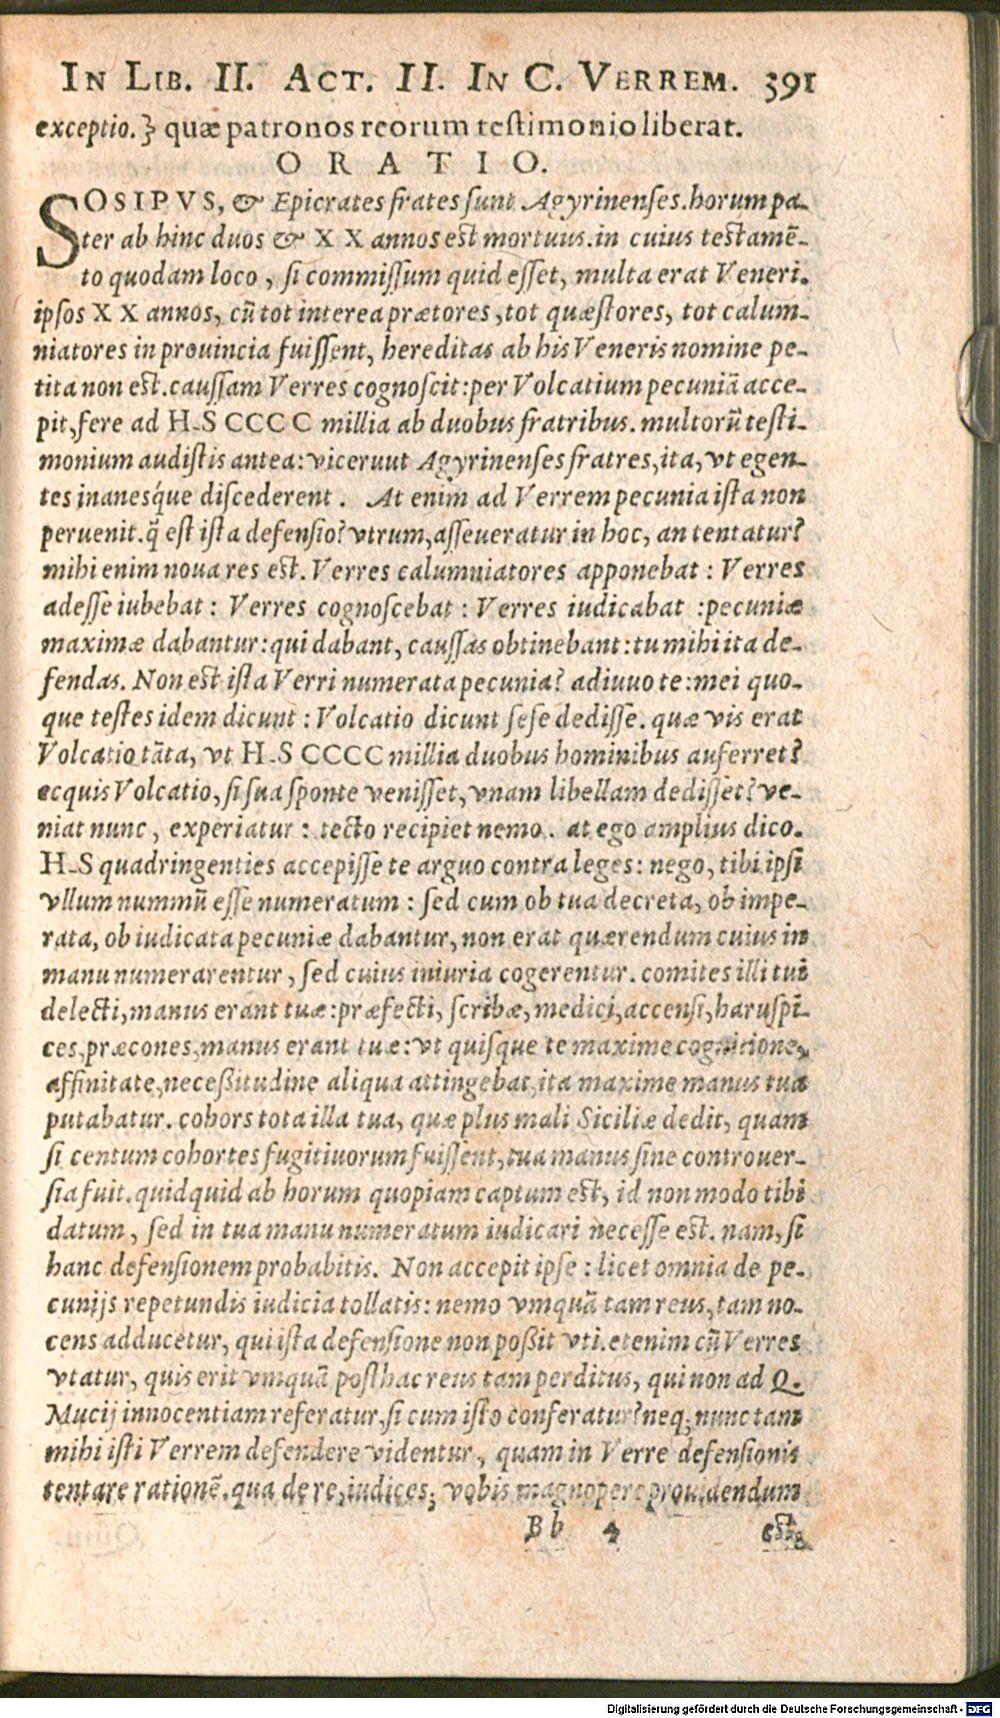 IN LIB. II. ACT. II. IN C. VERREM. 391
exceptio.} quæ patronos reorum testimonio liberat.
ORATIO.
SOSIPVS, & Epicrates frates sunt Agyrinenses. horum pa-
ter ab hinc duos & XX annos est mortuus. in cuius testamē-
to quodam loco, si commissum quid esset, multa erat Veneri.
ipsos XX annos, cū tot interea prætores, tot quæstores, tot calum-
niatores in prouincia fuissent, hereditas ab his Veneris nomine pe-
tita non est. caussam Verres cognoscit: per Volcatium pecuniā acce-
pit, fere ad H-S CCCC millia ab duobus fratribus. multorū testi-
monium audistis antea: viceruut Agyrinenses fratres, ita, vt egen-
tes inanesq́ue discederent. At enim ad Verrem pecunia ista non
peruenit. q̄ est ista defensio? vtrum, asseueratur in hoc, an tentatur?
mihi enim noua res est. Verres calumniatores apponebat: Verres
adesse iubebat: Verres cognoscebat: Verres iudicabat: pecuniæ
maximæ dabantur: qui dabant, caussas obtinebant: tu mihi ita de-
fendas. Non est ista Verri numerata pecunia? adiuuo te: mei quo-
que testes idem dicunt: Volcatio dicunt sese dedisse. quæ vis erat
Volcatio tāta, vt H-S CCCC millia duobus hominibus auferret?
ecquis Volcatio, si sua sponte venisset, vnam libellam dedisset? ve-
niat nunc, experiatur: tecto recipiet nemo. at ego amplius dico.
H-S quadringenties accepisse te arguo contra leges: nego, tibi ipsi
vllum nummū esse numeratum: sed cum ob tua decreta, ob impe-
rata, ob iudicata pecuniæ dabantur, non erat quærendum cuius in
manu numerarentur, sed cuius iniuria cogerentur. comites illi tui
delecti, manus erant tuæ: præfecti, scribæ, medici, accensi, haruspi-
ces, præcones, manus erant tuæ: vt quisque te maxime cognitione,
affinitate, necessitudine aliqua attingebat, ita maxime manus tua
putabatur. cohors tota illa tua, quæ plus mali Siciliæ dedit, quam
si centum cohortes fugitiuorum fuissent, tua manus sine controuer-
sia fuit. quidquid ab horum quopiam captum est, id non modo tibi
datum, sed in tua manu numeratum iudicari necesse est. nam, si
hanc defensionem probabitis. Non accepit ipse: licet omnia de pe-
cunijs repetundis iudicia tollatis: nemo vmquā tam reus, tam no-
cens adducetur, qui ista defensione non possit vti. etenim cū Verres
vtatur, quis erit vmquā posthac reus tam perditus, qui non ad Q.
Mucij innocentiam referatur, si cum isto conferatur? neq; nunc tam
mihi isti Verrem defendere videntur, quam in Verre defensionis
tentare rationē. qua de re, iudices, vobis magnopere prouidendum
Bb 4
Digitalisierung gefördert durch die Deutsche Forschungsgemeinschaft - DFG